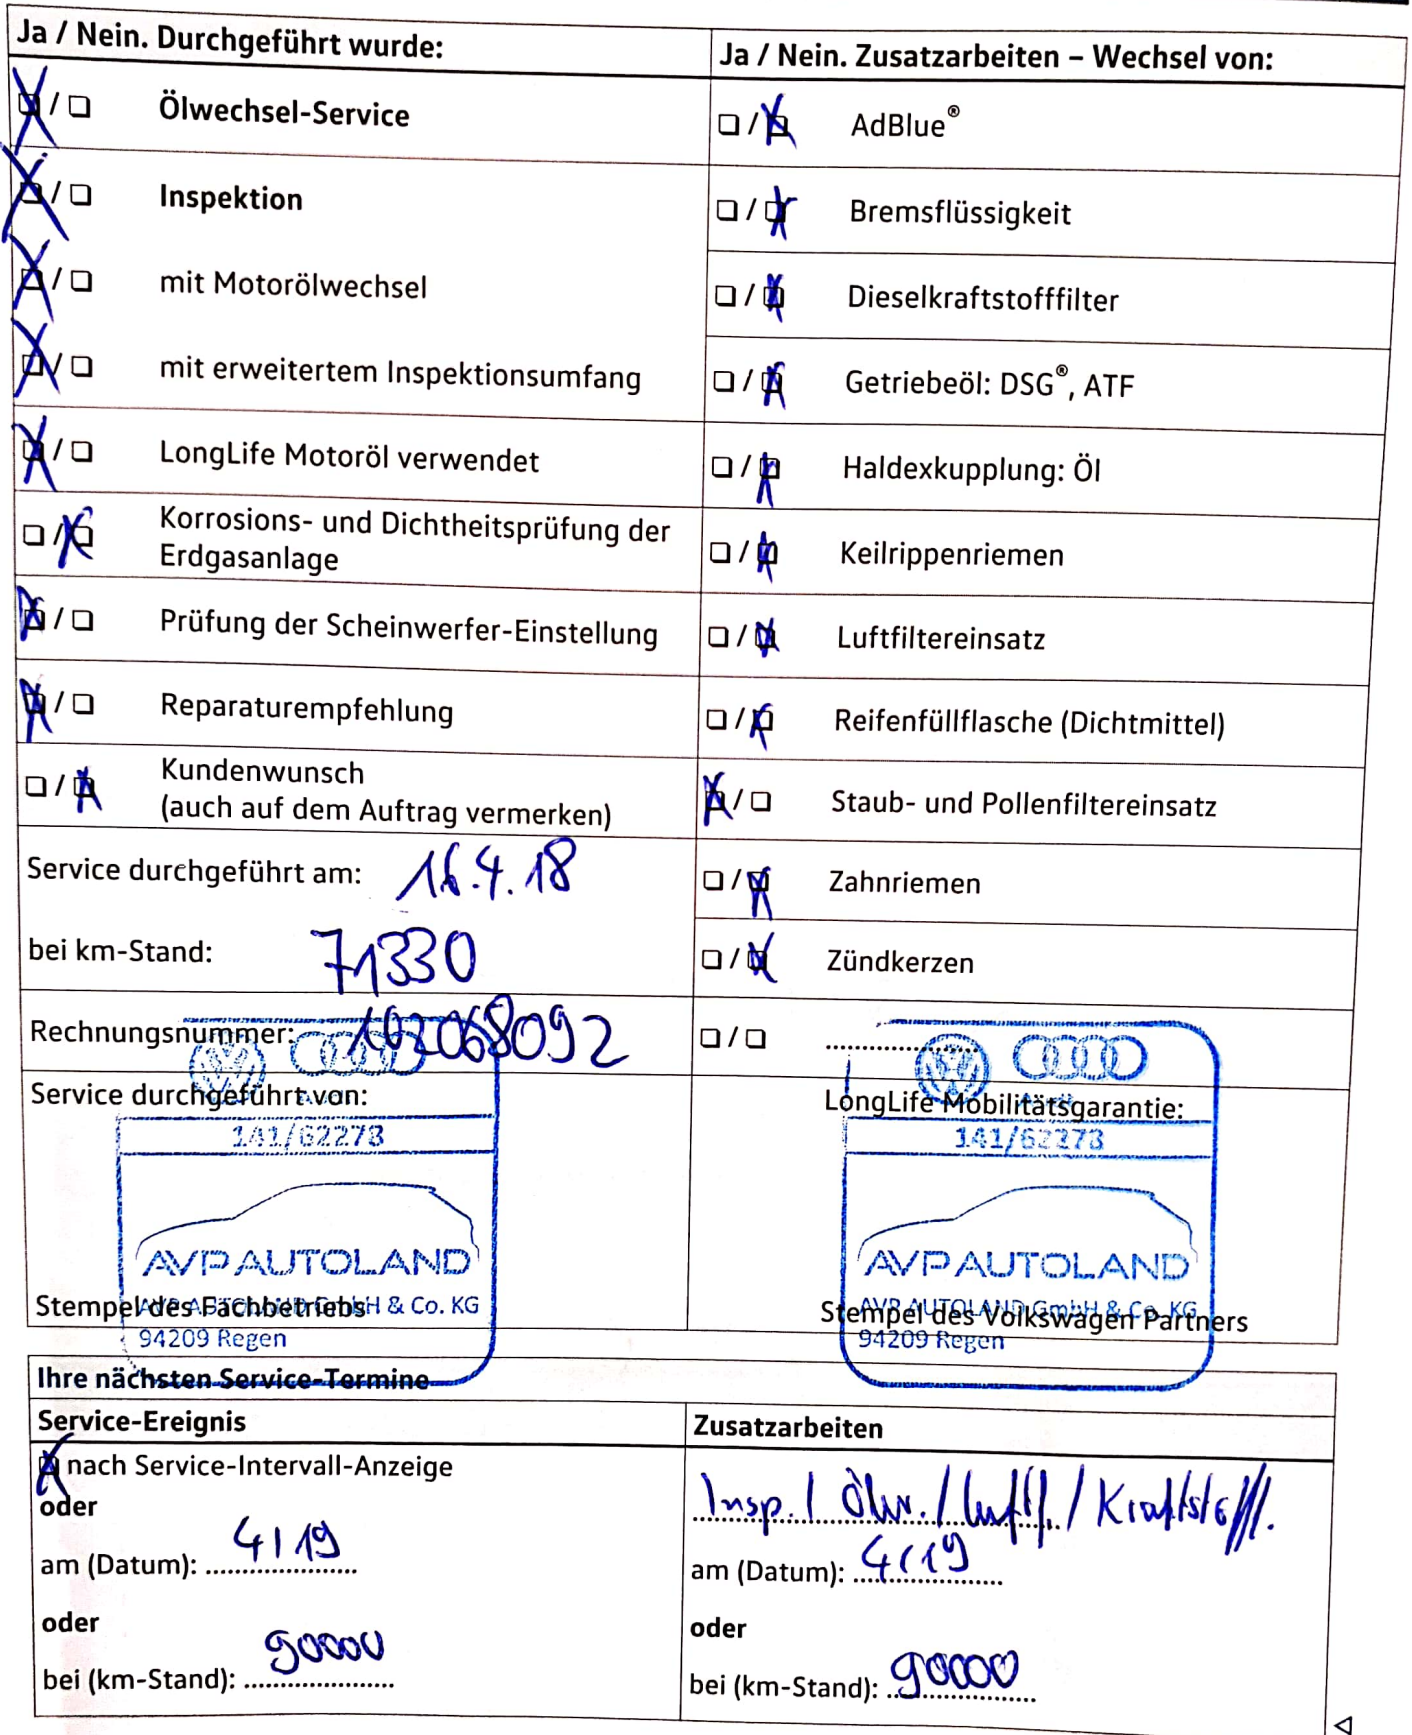 Ja / Nein. Durchgeführt wurde:
Ölwechsel-Service
Inspektion
mit Motorölwechsel
mit erweitertem Inspektionsumfang
LongLife Motoröl verwendet
Korrosions- und Dichtheitsprüfung der
Erdgasanlage
Prüfung der Scheinwerfer-Einstellung
Reparaturempfehlung
Kundenwunsch
(auch auf dem Auftrag vermerken)
Service durchgeführt am: 16.4.18
bei km-Stand: 71330
Rechnungsnummer: 102068092
Service durchgeführt von:
141/62273
AVP AUTOLAND
AVP AUTOLAND GmbH & Co. KG
Stempel des Fachbetriebs
94209 Regen
Ja / Nein. Zusatzarbeiten – Wechsel von:
AdBlue®
Bremsflüssigkeit
Dieselkraftstofffilter
Getriebeöl: DSG®, ATF
Haldexkupplung: Öl
Keilrippenriemen
Luftfiltereinsatz
Reifenfüllflasche (Dichtmittel)
Staub- und Pollenfiltereinsatz
Zahnriemen
Zündkerzen
LongLife Mobilitätsgarantie:
141/62273
AVP AUTOLAND
AVP AUTOLAND GmbH & Co. KG
Stempel des Volkswagen Partners
94209 Regen
Ihre nächsten Service-Termine
Service-Ereignis
nach Service-Intervall-Anzeige
oder
am (Datum): 4/19
oder
bei (km-Stand): 90000
Zusatzarbeiten
Insp. / Ölw. / Luftf. / Kraftstoff.
am (Datum): 4/19
oder
bei (km-Stand): 90000